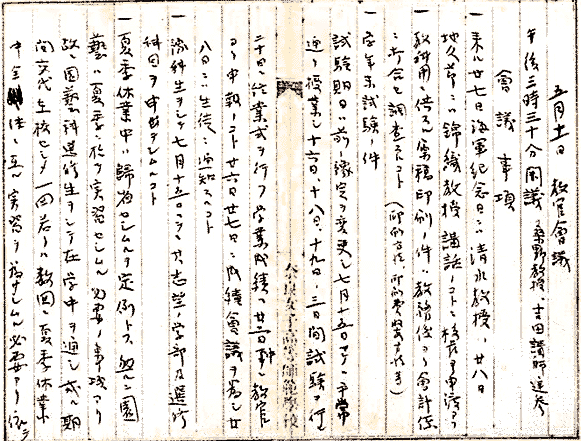 五月十一日 教官會議
午後三時三十分開議 桑野教授、吉田講師遅参
會議事項
一 来ル廿七日海軍紀念日ニハ清水教授、廿八日
地久節ニハ錦織教授講話ノコトニ校長ヨリ申渡アリ
一 教科用ニ供スル藁稿印刷ノ件ハ教務後ヨリ會計係
ニ打合セ調査スルコト
一 学年末試験ノ件
試験期日ハ前議定ヲ変更シ七月十五日マデ平常
通リ授業シ十六日、十八日、十九日ノ三日間試験ヲ行ヒ
二十日ニ終業式ヲ行フ 学業成績ハ廿二日教官
ヨリ申報ノコト 廿六日廿七日ニ成績會議ヲ為シ廿
八日ニハ生徒ニ通知スルコト
一 豫科生ヲシテ七月十五日マデニ入志望ノ学部及選修
科目ヲ申出デシムルコト
一 夏季休業中ハ歸省セシムルヲ定例トス 然ルニ園
藝ハ夏季ニ於テ実習セシムル必要ノ事項アリ
故ニ園藝科選修生ヲシテ在学中ヲ通シ或ル期
間交代在校セシメ一回若クハ数回、夏季休業
中 実習ヲ為サシムル必要アリ
奈良女子高等師範學校